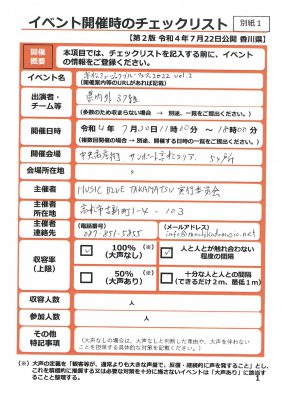 イベント開催時のチェックリスト
別紙1
【第2版 令和4年7月22日公開 香川県】
開催概要
本項目では、チェックリストを記入する前に、イベント
の情報をご登録ください。
イベント名
2022 vol.2
(開催案内等のURLがあれば記載)
出演者・
チーム等
県内外 37組
(多数のため収まらない場合 → 別途、一覧をご提出ください。)
開催日時
令和 4年 7月30日 11時00分 ~ 18時00分
(複数回開催の場合 → 別途、開催する日時の一覧をご提出ください。)
開催会場
中央商店街 サンポート高松エリア 5ヶ所
会場所在地
主催者
MUSIC BLUE TAKAMATSU 実行委員会
主催者
所在地
高松市 1-4-103
主催者
連絡先
(電話番号)
087-851-5855
(メールアドレス)
収容率
(上限)
100% (※)
(大声なし)
人と人とが触れ合わない
程度の間隔
50% (※)
(大声あり)
十分な人と人との間隔
(できるだけ2m、最低1m)
収容人数
人
参加人数
人
その他
特記事項
(大声なしの場合は、大声なしと判断した理由や、大声を伴わない
ことを担保する具体的な対策を記載ください。)
(※) 大声の定義を「観客等が、通常よりも大きな声量で、反復・継続的に声を発すること」とし、
これを積極的に推奨する又は必要な対策を十分に施さないイベントは「大声あり」に該当する
ことと整理する。
1